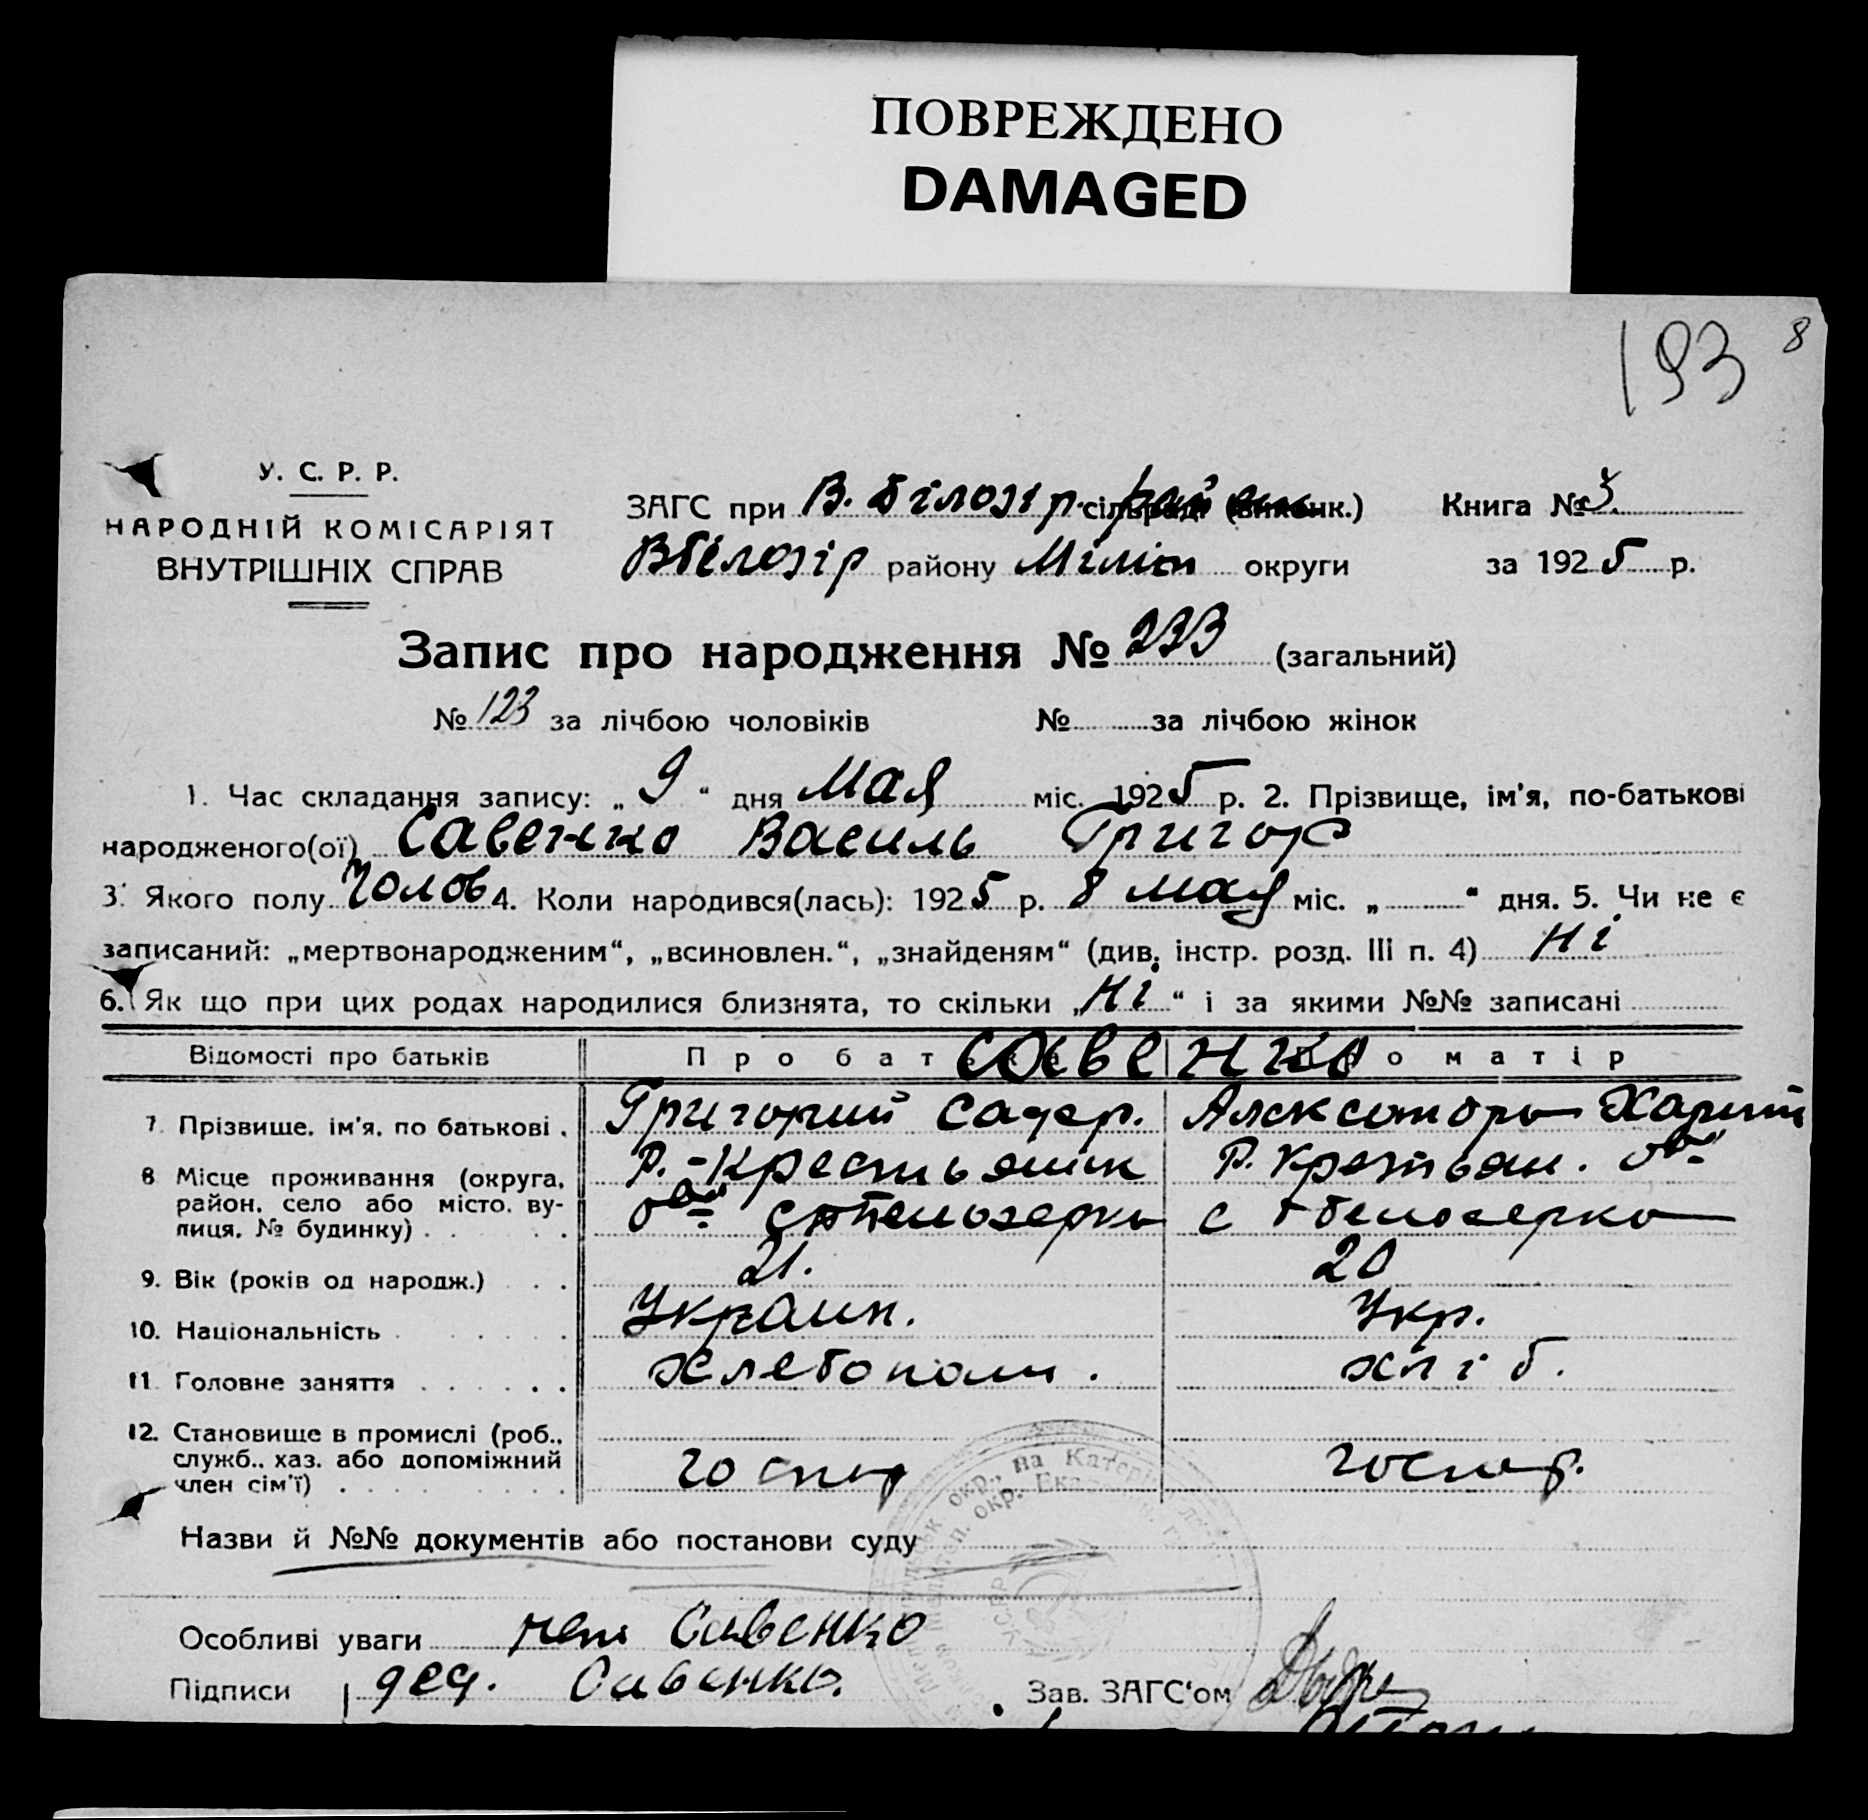 ПОВРЕЖДЕНО
DAMAGED
193 8
У. С. Р. Р.
НАРОДНІЙ КОМІСАРІЯТ
ВНУТРІШНІХ СПРАВ
ЗАГС при В. Білозір. сільраді рай (виконк.) Книга № 3.
ВБілозір району Мілит округи за 1925 р.
Запис про народження № 233 (загальний)
№ 123 за лічбою чоловіків № за лічбою жінок
1. Час складання запису: „ 9 “ дня Мая міс. 1925 р. 2. Прізвище, ім'я, по-батькові
народженого(ої) Савенко Василь Григор
3. Якого полу Чолов 4. Коли народився(лась): 1925 р. 8 мая міс. „ “ дня. 5. Чи не є
записаний: „мертвонародженим“, „всиновлен.“, „знайденям“ (див. інстр. розд. III п. 4) Ні
6. Як що при цих родах народилися близнята, то скільки „ Ні “ і за якими №№ записані
Відомості про батьків Про батька Савенко Про матір
7. Прізвище, ім'я, по батькові . Григорий Александра Харит
8 Місце проживання (округа, Р.-Крестьянин Р. Крестьян.
район, село або місто, ву-
лиця, № будинку) . . . . с
9. Вік (років од народж.) . . 21. 20
10. Національність . . . . . Украин. Укр.
11. Головне заняття . . . . . . хлебопаш. хліб.
12. Становище в промислі (роб.,
служб., хаз. або допоміжний
член сім'ї) . . . . . . . госпор госпор.
Назви й №№ документів або постанови суду
Особливі уваги Савенко
Підписи дед. Савенко. Зав. ЗАГС'ом